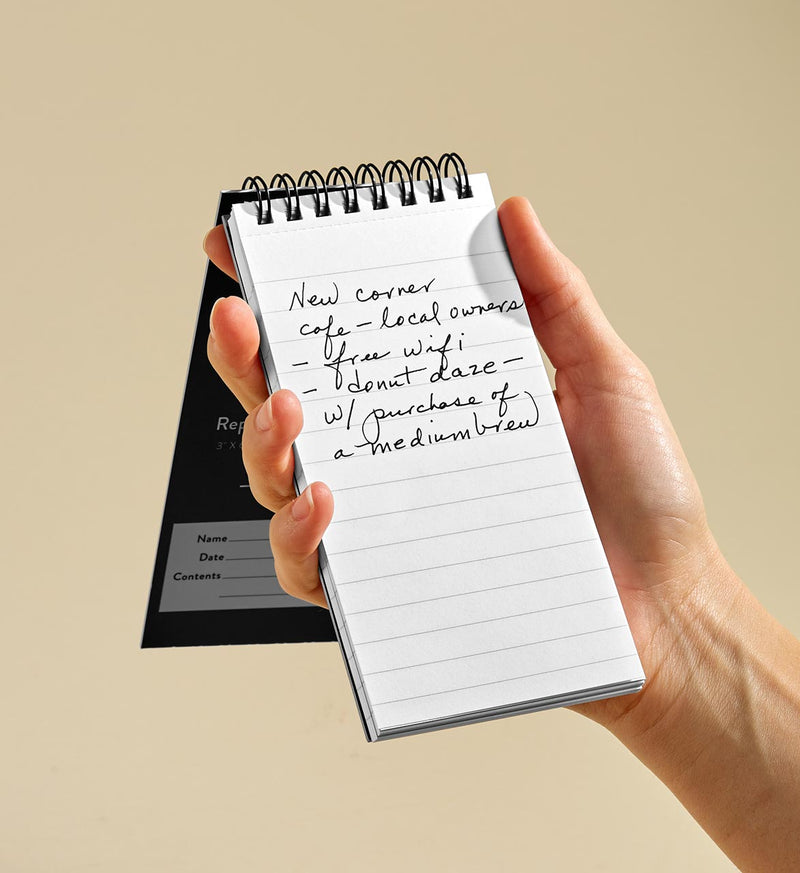 New corner
cafe – local owners
– free wifi
– donut daze –
w/ purchase of
a medium brew
Rep
3" X
Name
Date
Contents